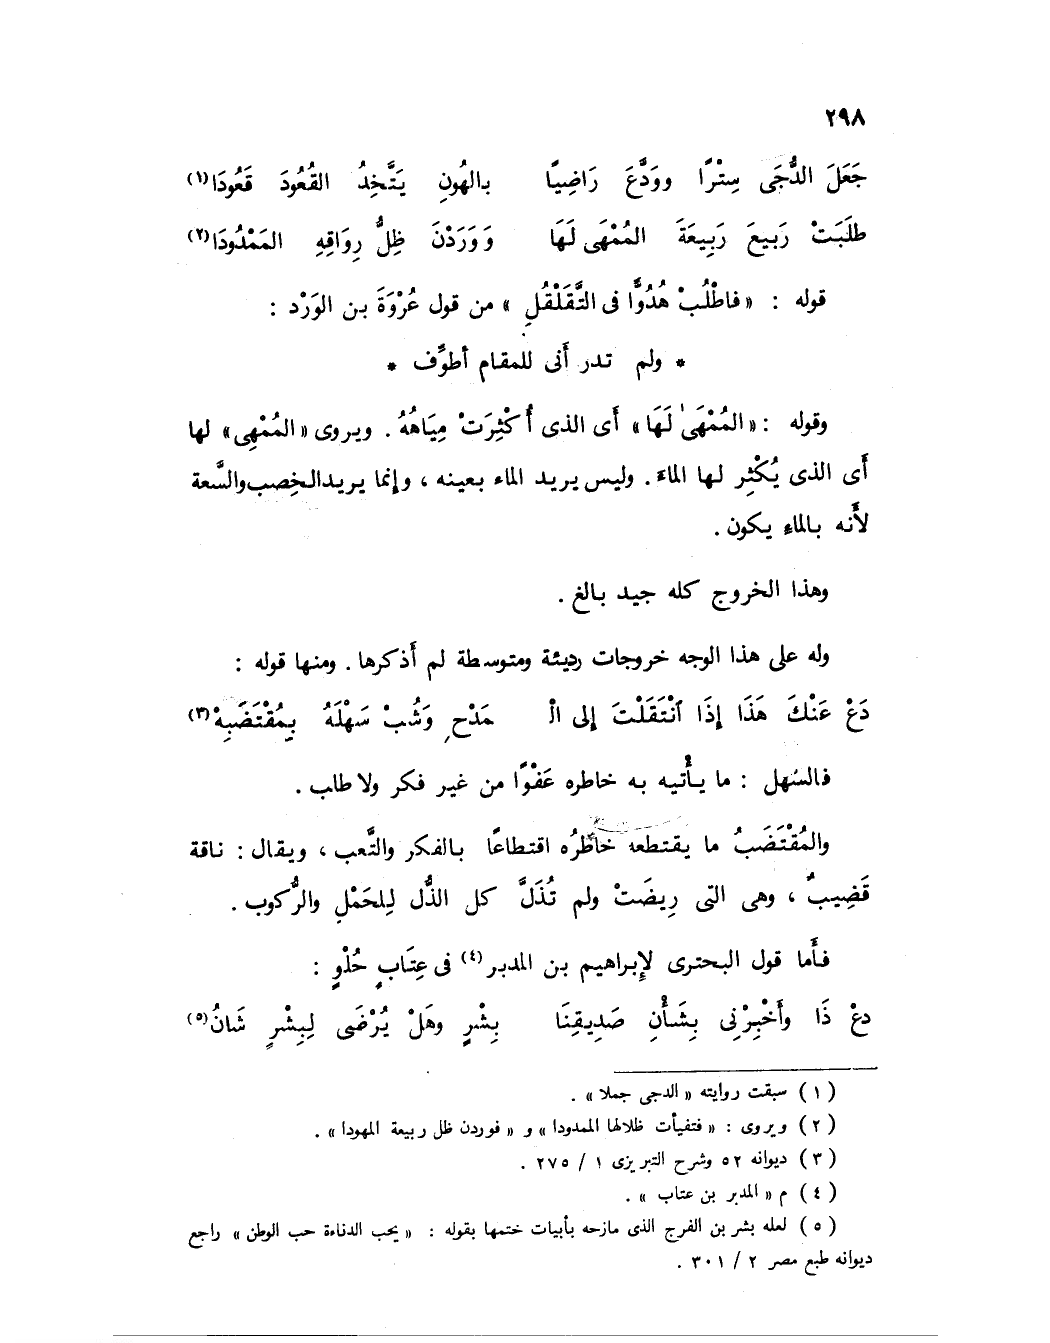 ٢٩٨
جَعَلَ الدُّجَى سِتْرًا وودَّعَ رَاضِيًا بالهُونِ يَتَّخِذُ القُعُودَ قَعُودَا(١)
طلَبَتْ رَبيعَ رَبِيعَةَ المُمْهَى لَهَا وَوَرَدْنَ ظِلَّ رِوَاقِهِ المَمْدُودَا(٢)
قوله : « فاطْلُبْ هُدُوًّا فى التَّقَلْقُلِ » من قول عُرْوَةَ بن الوَرْد :
* ولم تدر أَنى للمقام أطوِّف *
وقوله : « المُمْهَىٰ لَهَا » أَى الذى أُكْثِرَتْ مِيَاهُهُ . ويروى « المُمْهِى » لها
أَى الذى يُكْثِر لها الماء . وليس يريد الماء بعينه ، وإنما يريد الخِصب والسَّعة
لأَنه بالماء يكون .
وهذا الخروج كله جيد بالغ .
وله على هذا الوجه خروجات رديئة ومتوسطة لم أَذكرها . ومنها قوله :
دَعْ عَنْكَ هَذَا إِذَا ٱنْتَقَلْتَ إلى الْ مَدْحِ وَشُبْ سَهْلَهُ بِمُقْتَضَبِهْ(٣)
فالسَهل : ما يأْتيه به خاطره عَفْوًا من غير فكر ولا طلب .
والمُقْتَضَبُ ما يقتطعه خاطرُه اقتطاعًا بالفكر والتَّعب ، ويقال : ناقة
قَضِيبٌ ، وهى التى رِيضَتْ ولم تُذَلَّ كل الذُّل لِلحَمْلِ والرُّكوب .
فأَما قول البحترى لإِبراهيم بن المدبر(٤) فى عِتَابٍ حُذْوٍ :
دعْ ذَا وأَخْبِرْنِى بِشَأْنِ صَدِيقِنَا بِشْرٍ وهَلْ يُرْضَى لِبِشْرٍ شَانُ(٥)
( ١ ) سبقت روايته « الدجى جملا » .
( ٢ ) ويروى : « فتفيأت ظلالها الممدودا » و « فوردن ظل ربيعة المهودا » .
( ٣ ) ديوانه ٥٢ وشرح التبريزى ١ / ٢٧٥ .
( ٤ ) م « المدبر بن عتاب » .
( ٥ ) لعله بشر بن الفرج الذى مازحه بأبيات ختمها بقوله : « يحب الدناءة حب الوطن » راجع
ديوانه طبع مصر ٢ / ٣٠١ .